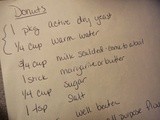 Donuts
1 pkg active dry yeast
1/4 cup warm water
3/4 cup milk scalded
1 stick margarine or butter
1/4 cup sugar
1 tsp salt
well-beaten
purpose